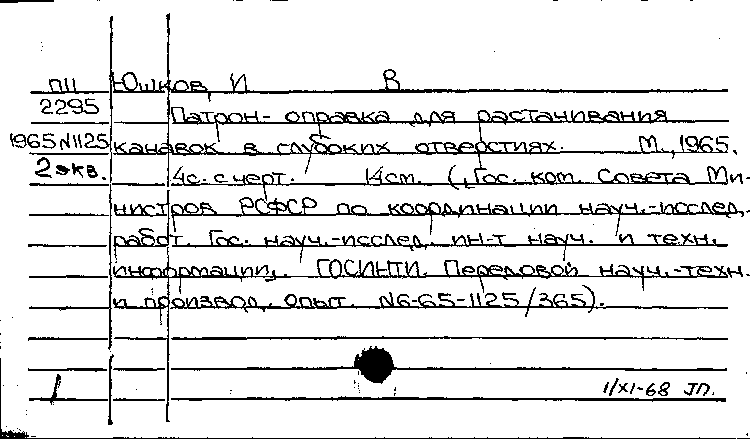 ПII Юшков, И В
2295 Патрон- оправка для растачивания
1965 N1125 канавок в глубоких отверстиях. М., 1965.
2 экв. 4с. с черт. 14см. (,,Гос. ком. Совета Ми-
нистров РСФСР по координации науч.-исслед.
работ. Гос. науч.-исслед. ин-т науч. и техн.
информации,,. ГОСИНТИ. Передовой науч.-техн.
и производ. опыт. N6-65-1125/365).
1 1/XI-68 ЛП.